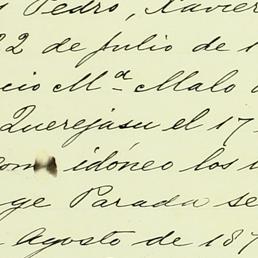 Pedro, Xavier
22 de Julio de 1
cio Mª Malo
Querejasu el 17
como idóneo los
ge Parada se
Agosto de 187